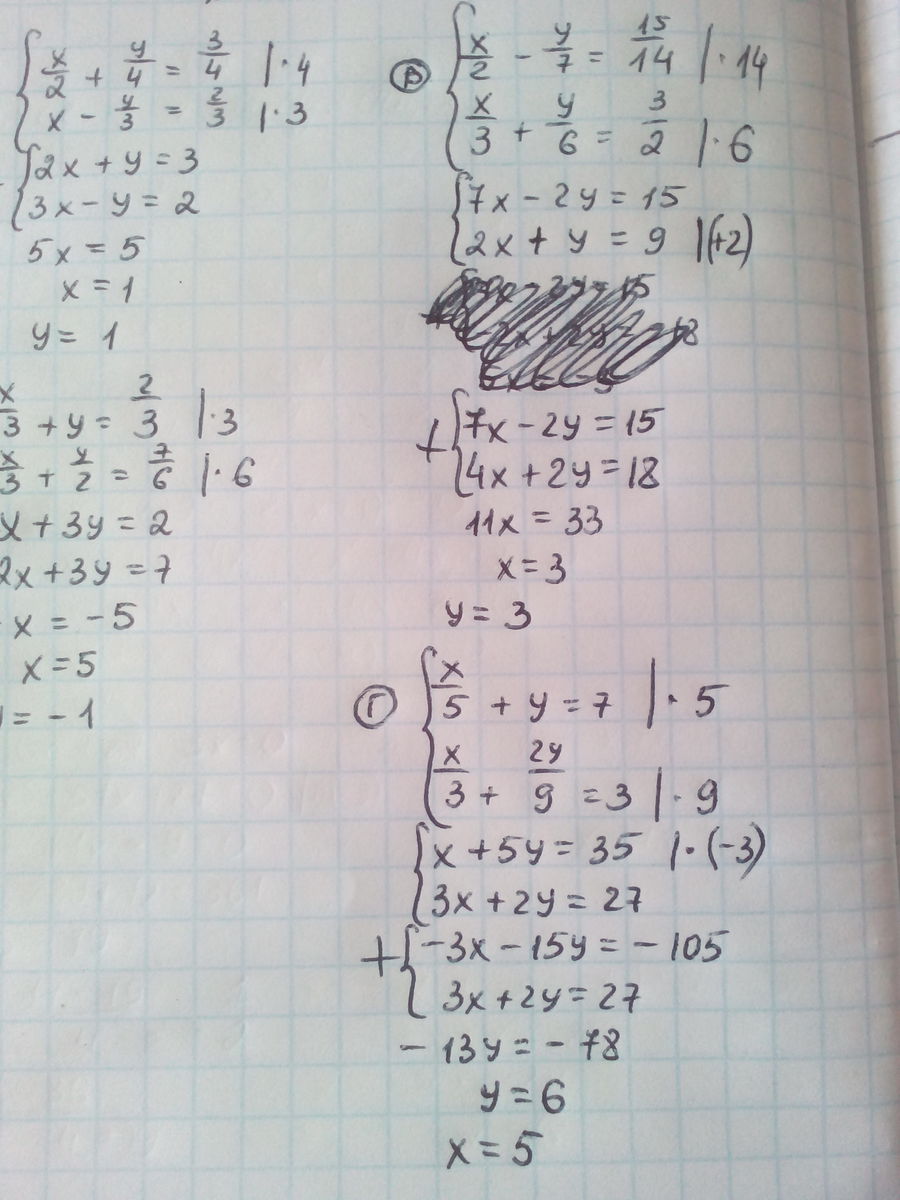 x/2 + y/4 = 3/4 |·4
x - y/3 = 2/3 |·3
2x + y = 3
3x - y = 2
5x = 5
x = 1
y = 1
x/3 + y = 2/3 |·3
x/3 + y/2 = 7/6 |·6
x + 3y = 2
2x + 3y = 7
x = -5
x = 5
= -1
В x/2 - y/7 = 15/14 |·14
x/3 + y/6 = 3/2 |·6
7x - 2y = 15
2x + y = 9 |(+2)
+ 7x - 2y = 15
4x + 2y = 18
11x = 33
x = 3
y = 3
Г x/5 + y = 7 |·5
x/3 + 2y/9 = 3 |·9
x + 5y = 35 |·(-3)
3x + 2y = 27
+ -3x - 15y = -105
3x + 2y = 27
-13y = -78
y = 6
x = 5